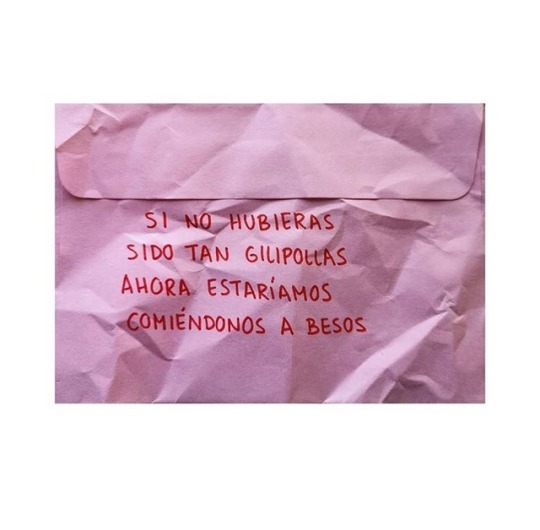 SI NO HUBIERAS
SIDO TAN GILIPOLLAS
AHORA ESTARÍAMOS
COMIÉNDONOS A BESOS